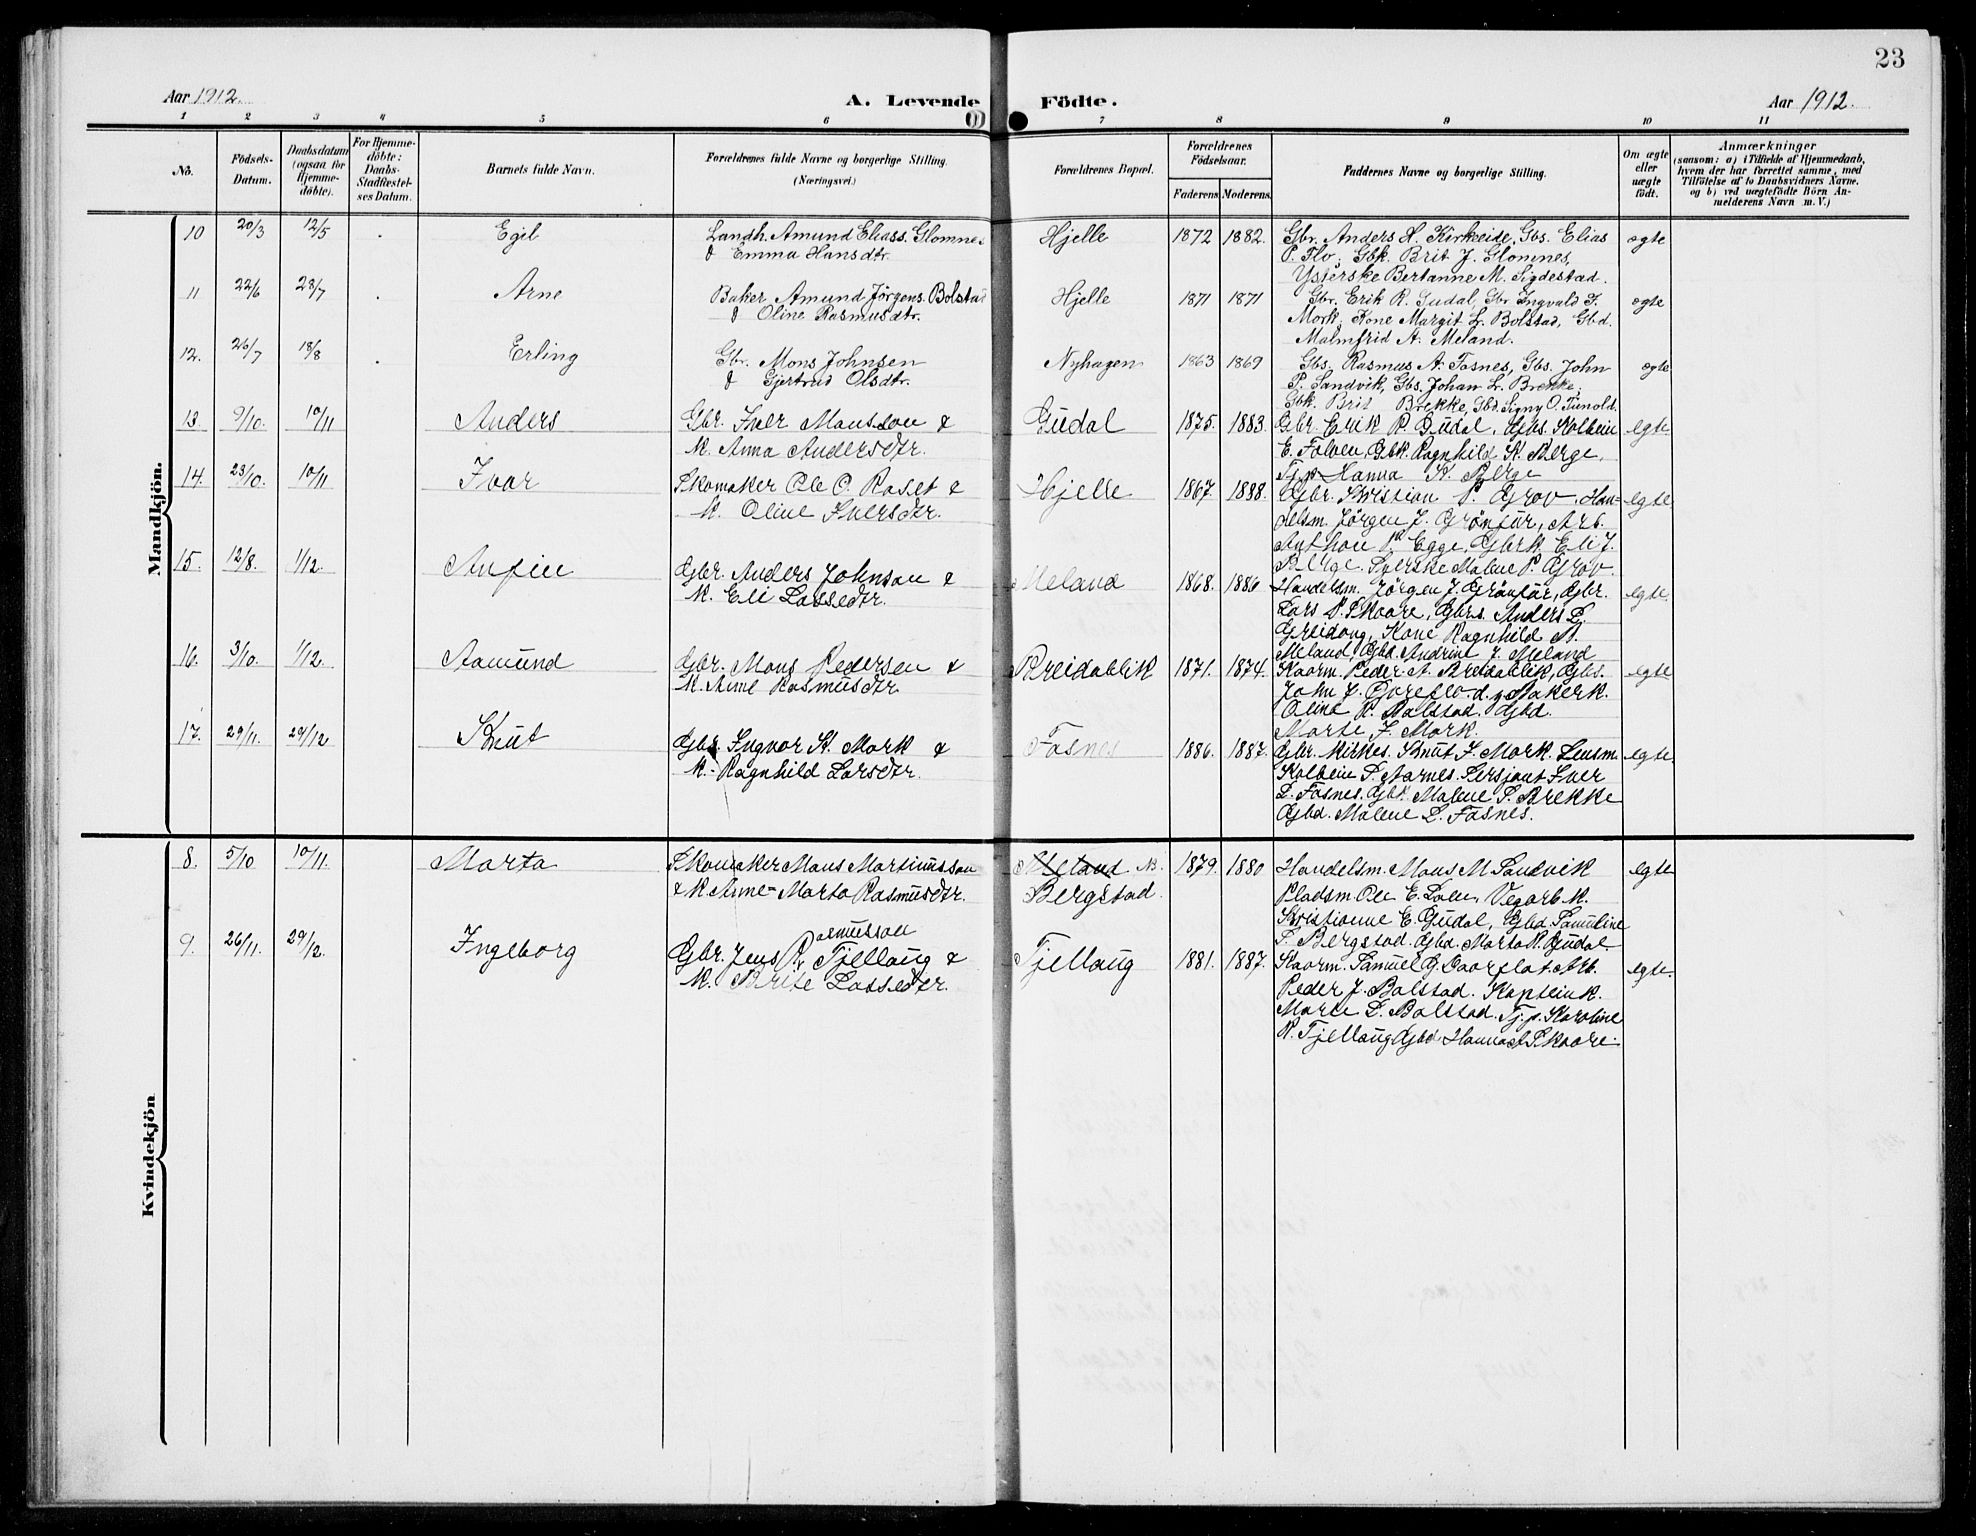 23
Aar 1912. A. Levende Födte. Aar 1912.
1 2 3 4 5 6 7 8 9 10 11
No. Födsels-Datum. Daabsdatum (ogsaa for Hjemme-döbte). For Hjemme-döbte: Daabs-Stadfæstel-ses Datum. Barnets fulde Navn. Forældrenes fulde Navne og borgerlige Stilling. (Næringsvei.) Forældrenes Bopæl. Forældrenes Födselsaar. Faderens Moderens. Faddernes Navne og borgerlige Stilling. Om ægte eller uægte födt. Anmærkninger (saasom: a) i Tilfælde af Hjemmedaab, hvem der har forrettet samme, med Tilföielse af to Daabsvidners Navne. og b) ved uægtefödte Börn An-melderens Navn m. V.)
Mandkjön.
10 20/3 12/5 Egil Landh. Amund Eliass. Glomnes Hjelle 1872 1882. Gbr. Anders H. Kirkeeide, Gbs. Elias ægte
& Emma Hansdtr. P. Flo, Gbk. Brit J. Glomnes,
Ysterske Bertanne M. Sigdestad.
11 22/6 28/7 Arne Baker Amund Jörgens. Bolstad Hjelle 1871 1871 Gbr. Erik R. Gudal, Gbr Ingvald I. ægte
& Oline Rasmusdtr. Mork, Kone Margit L. Bolstad, Gbd.
Malmfrid A. Meland.
12. 26/7 18/8 Erling Gbr. Mons Johnsen Nyhagen 1863 1869 Gbs. Rasmus A. Fosnes, Gbs. John ægte
& Gjertrud Olsdtr. P. Sandvik, Gbs. Johan L. Brekke,
Gbk. Brit Brekke, Gbd. Signy O. Tunold.
13. 9/10. 10/11 Anders Gbr. Iver Monsson & Gudal 1875. 1883. Gbr. Erik R. Gudal, Gbs. Kolbein egte
K. Anna Andersdtr. E. Folven, Gbk. Ragnhild K. Berge,
Tjp. Hanna K. Berge
14. 23/10. 10/11 Ivar Skomaker Ole O. Roset & Hjelle 1867. 1888. Gbr. Kristian P. Grov, Han= egte
K. Oline Iversdtr. delsm. Jørgen J. Grönfur, Arb.
Anthon Egge, Gbrk. Eli J.
15. 12/8. 1/12. Anfin Gbr. Anders Johnson & Meland 1868. 1886 Berge. Syerske Malene P. Grov.
K. Eli Lassedtr. Handelsm. Jørgen J. Grönfur, Gbr. egte.
Lars P. Skaare, Gbrs. Anders L.
Greidung, Kone Ragnhild A.
16. 3/10. 1/12. Aamund Gbr. Mons Pedersen & Breidablik 1871. 1874. Meland, Gbd. Andrine J. Meland
K. Anne Rasmusdtr. Kaarm. Peder A. Breidablik, Gbs. egte
John J. Bakerk.
Oline R. Bolstad. Gbd.
17. 29/11. 29/12 Knut Gbr. Ingvar K. Mork & Fosnes 1886. 1887. Marte J. Mork.
K. Ragnhild Larsdtr. Gbr. Kirkes. Knut I. Mork. Lensm. egte
Kolbein S. Aarnes. Sersjant Iver
L. Fosnes. Gbk. Malene S. Brekke
Gbd. Malene L. Fosnes.
Kvindekjön
8. 5/10 10/11. Marta Skomaker Mons Martinusson Meland N. 1879. 1880 Handelsm. Mons M. Sandvik egte
& K. Anne-Marta Rasmusdtr. Bergstad. Pladsm. Ole E. Lolen, Vegarb.k.
Kristianne E. Gudal, Gbd. Samuline
S. Bergstad. Gbd. Marta R. Gudal.
9. 26/11. 29/12. Ingeborg Gbr. Jens Rasmusson Tjellaug & Tjellaug 1881. 1887. Kaarm. Samuel G. Arb. egte.
K. Brite Lassedtr. Peder J. Bolstad. Kapteink.
Marie L. Bolstad. Tj.p. Karoline
R. Tjellaug Gbd Hanna Skaare.